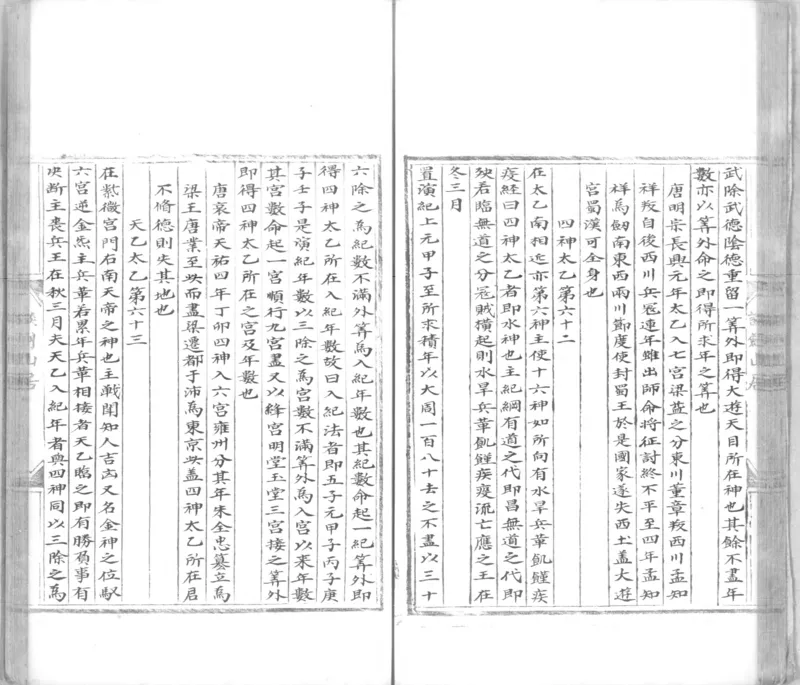 武除武德陰德重留一筭外即得大遊天目所在神也其餘不盡年
數亦以筭外命之即得所求年之筭也
唐明宗長興元年太乙入七宮梁益之分東川董章叛西川孟知
祥叛自後西川兵寇連年雖出師命將征討終不平至四年孟知
祥為劔南東西兩川節度使封蜀王於是國家遂失西土盖大遊
宮蜀漢可全身也
四神太乙第六十二
在太乙南相近亦第六神主使十六神如所向有水旱兵革飢饉疾
疫經曰四神太乙者即水神也主紀綱有道之代即昌無道之代即
殃若臨無道之分冦賊橫起則水旱兵革飢饉疾疫流亡應之王在
冬三月
置演紀上元甲子至所求積年以大周一百八十去之不盡以三十
六除之為紀數不滿外筭為入紀年數也其紀數命起一紀筭外即
得四神太乙所在入紀年數故曰入紀法者即五子元甲子丙子庚
子壬子是演紀年數以三除之為宮數不滿筭外為入宮以來年數
其宮數命起一宮順行九宮盡又以絳宮明堂玉堂三宮接之筭外
即得四神太乙所在之宮及年數也
唐哀帝天祐四年丁卯四神入六宮雍州分其年朱全忠簒立為
梁王唐業至此而盡梁遷都于沛為東京此盖四神太乙所在君
不脩德則失其地也
天乙太乙第六十三
在紫微宮門右南天帝之神也主戰鬪知人吉凶又名金神之位馭
六宮遞金炁主兵革若累年兵革相接者天乙臨之即有勝負事有
决斷主喪兵王在秋三月夫天乙入紀年者與四神同以三除之為